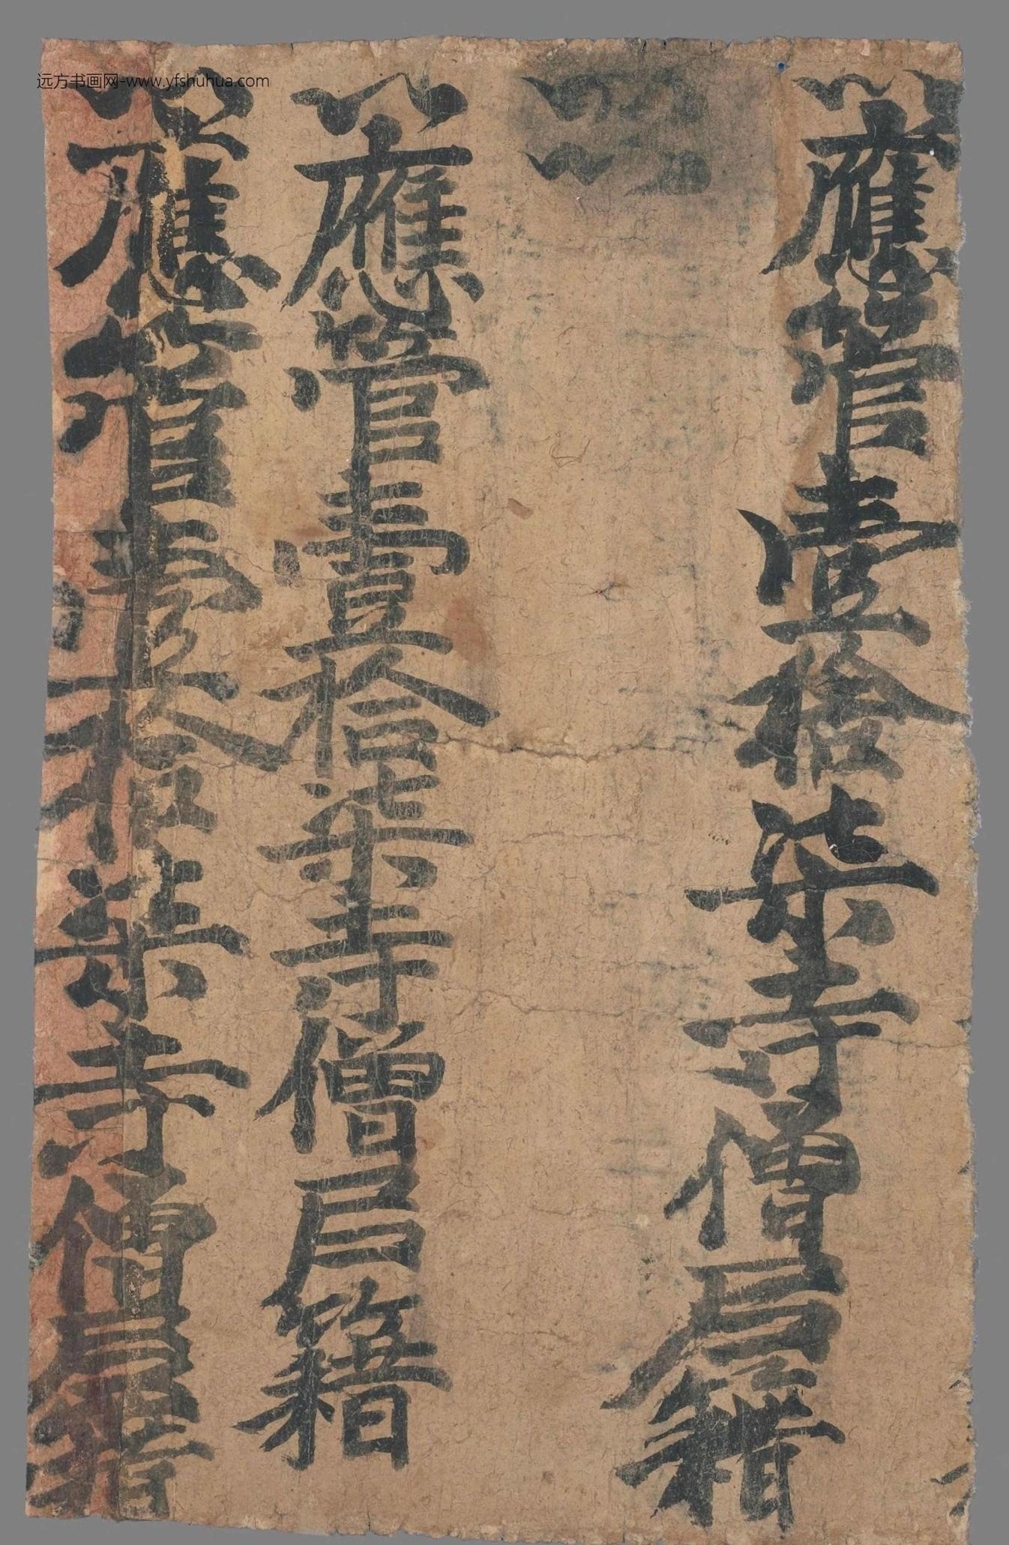 远方书画网-www.yfshuhua.com
應管壹拾柒寺僧尼籍
應管壹拾柒寺僧尼籍
應管壹拾柒寺僧尼籍